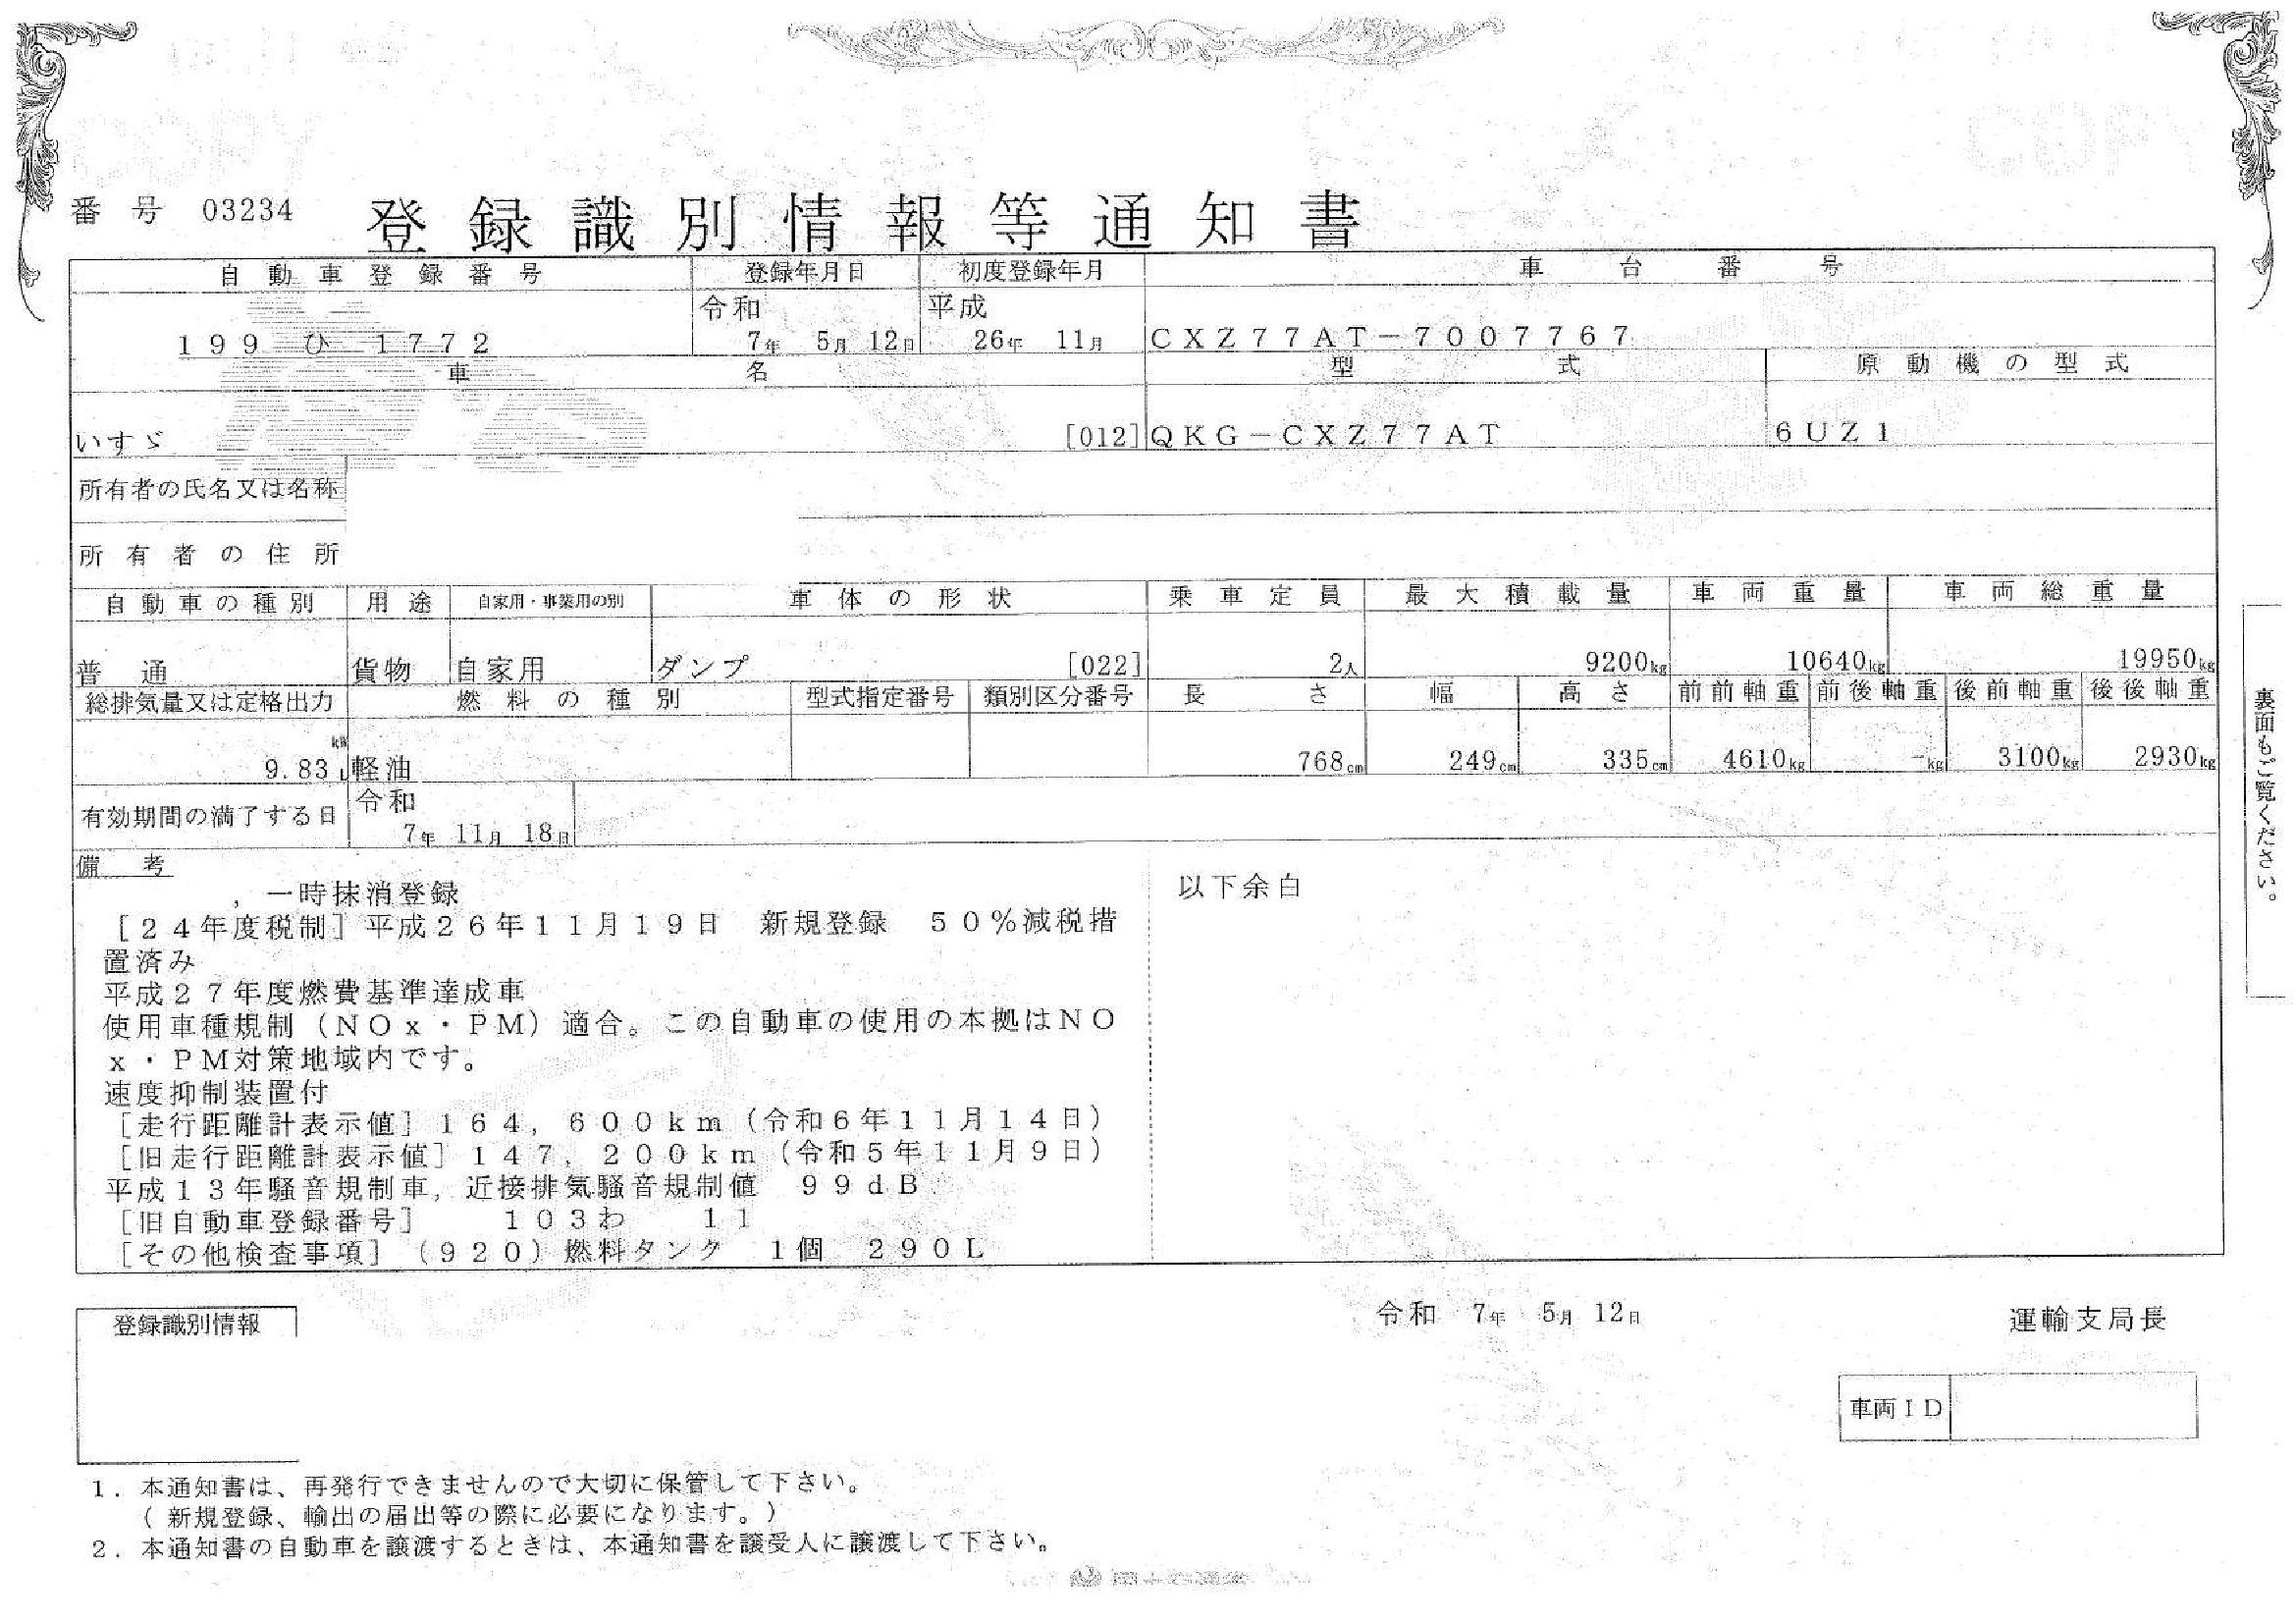 番号 03234 登録識別情報等通知書
自動車登録番号 登録年月日 初度登録年月 車台番号
199 ひ 1772 令和 7年 5月 12日 平成 26年 11月 CXZ77AT-7007767
車名 型式 原動機の型式
いすゞ [012] QKG-CXZ77AT 6UZ1
所有者の氏名又は名称
所有者の住所
自動車の種別 用途 自家用・事業用の別 車体の形状 乗車定員 最大積載量 車両重量 車両総重量
普通 貨物 自家用 ダンプ [022] 2人 9200kg 10640kg 19950kg
総排気量又は定格出力 燃料の種別 型式指定番号 類別区分番号 長さ 幅 高さ 前前軸重 前後軸重 後前軸重 後後軸重
kW
9.83 L 軽油 768cm 249cm 335cm 4610kg -kg 3100kg 2930kg
有効期間の満了する日 令和 7年 11月 18日
備考
, 一時抹消登録
[24年度税制] 平成26年11月19日 新規登録 50%減税措
置済み
平成27年度燃費基準達成車
使用車種規制(NOx・PM)適合。この自動車の使用の本拠はNO
x・PM対策地域内です。
速度抑制装置付
[走行距離計表示値] 164,600km(令和6年11月14日)
[旧走行距離計表示値] 147,200km(令和5年11月9日)
平成13年騒音規制車,近接排気騒音規制値 99dB
[旧自動車登録番号] 103わ 11
[その他検査事項](920)燃料タンク 1個 290L
以下余白
裏面もご覧ください。
登録識別情報
令和 7年 5月 12日 運輸支局長
車両ID
1.本通知書は、再発行できませんので大切に保管して下さい。
(新規登録、輸出の届出等の際に必要になります。)
2.本通知書の自動車を譲渡するときは、本通知書を譲受人に譲渡して下さい。
COPY
COPY